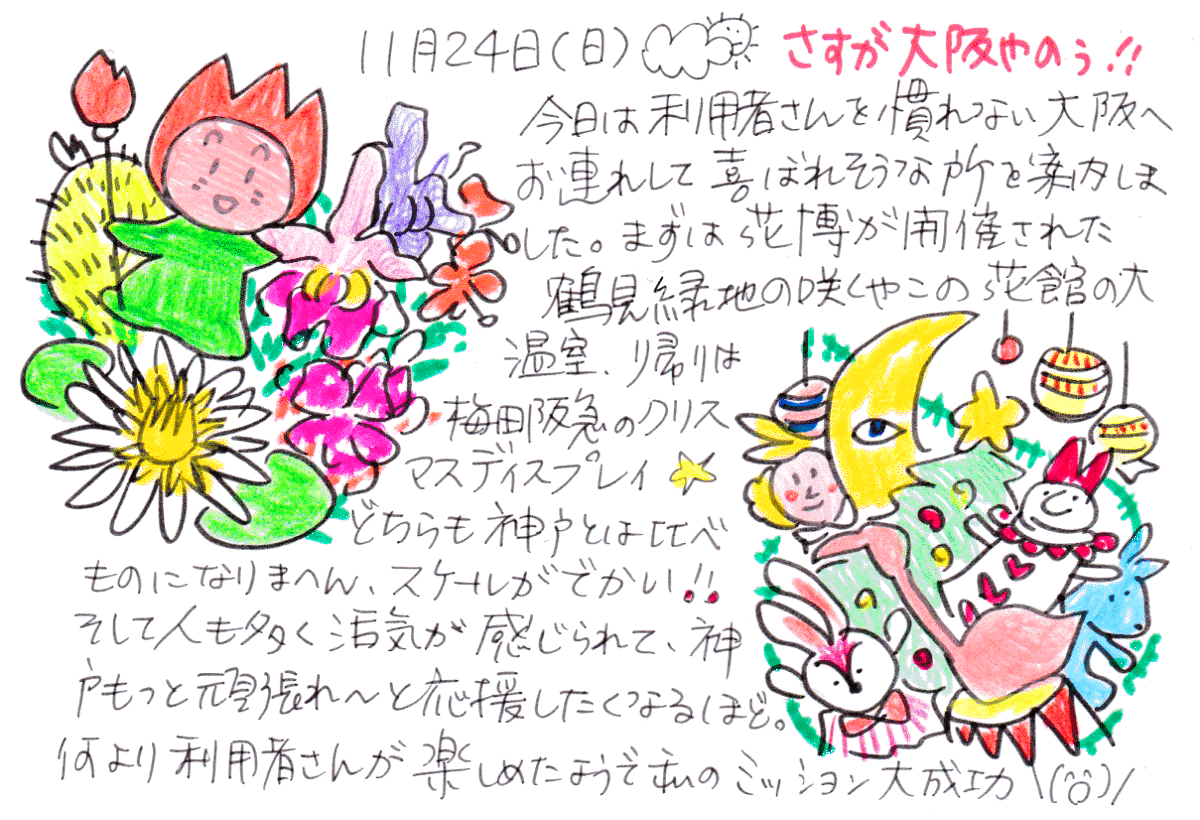 11月24日(日) さすが大阪やのぅ!!
今日は利用者さんを慣れない大阪へ
お連れして喜ばれそうな所を案内しま
した。まずは花博が開催された
鶴見緑地の咲くやこの花館の大
温室、帰りは
梅田阪急のクリス
マスディスプレイ
どちらも神戸とは比べ
ものになりまへん、スケールがでかい!!
そして人も多く活気が感じられて、神
戸もっと頑張れ〜と応援したくなるほど。
何より利用者さんが楽しめたようで私のミッション大成功\(^o^)/